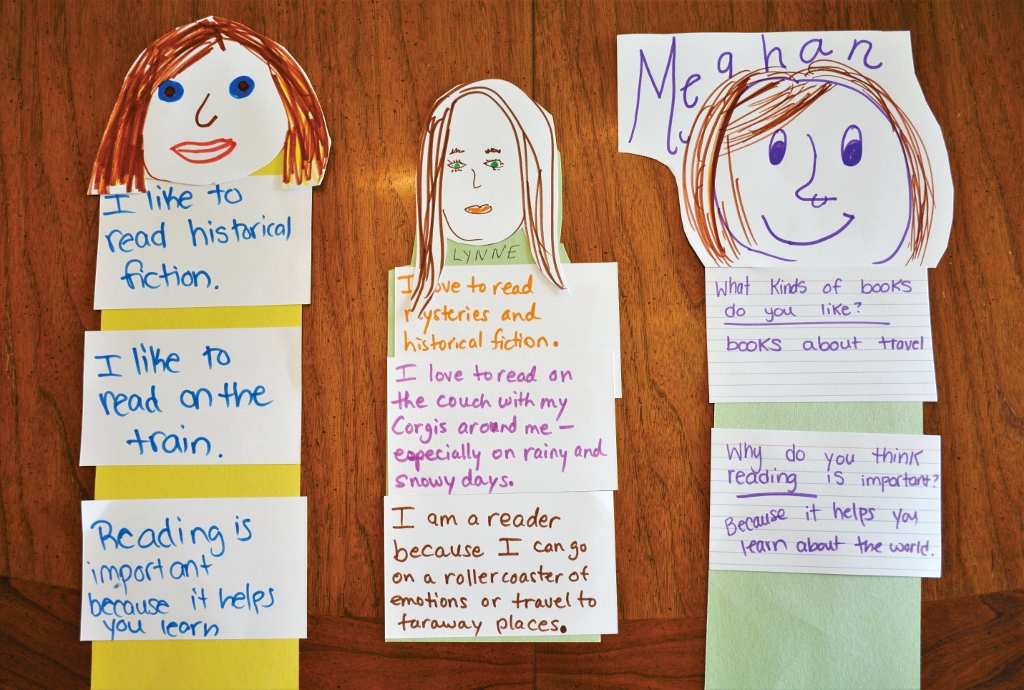 I like to
read historical
fiction.
I like to
read on the
train.
Reading is
important
because it helps
you learn
LYNNE
I love to read
mysteries and
historical fiction.
I love to read on
the couch with my
Corgis around me –
especially on rainy and
snowy days.
I am a reader
because I can go
on a rollercoaster of
emotions or travel to
faraway places.
Meghan
What Kinds of books
do you like?
books about travel
Why do you think
reading is important?
Because it helps you
learn about the world.